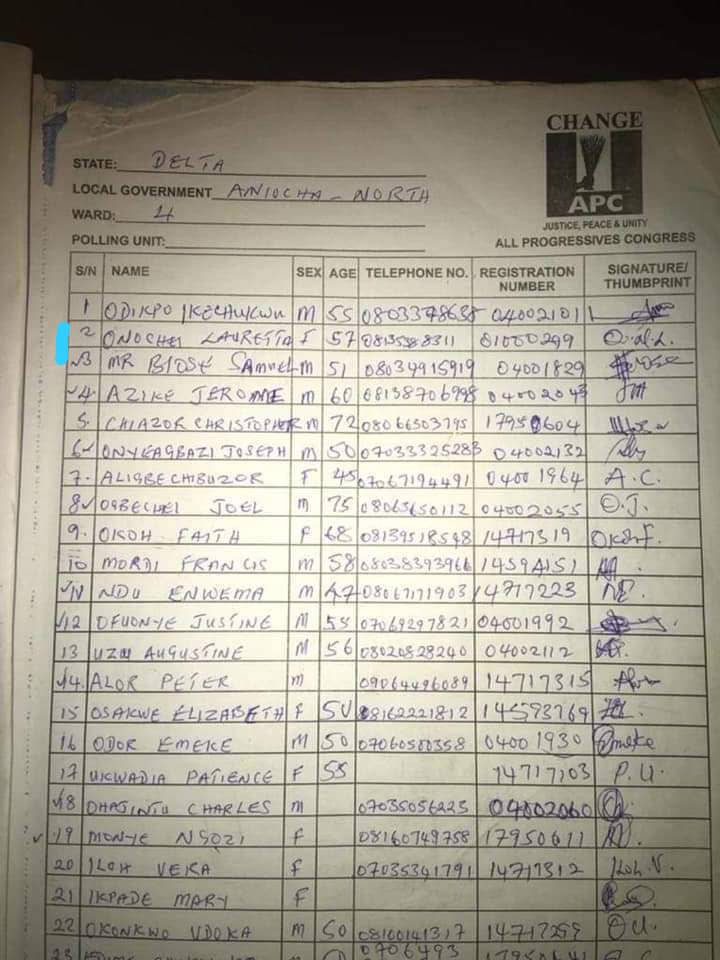 CHANGE
APC
JUSTICE, PEACE & UNITY
ALL PROGRESSIVES CONGRESS
STATE: DELTA
LOCAL GOVERNMENT ANIOCHA - NORTH
WARD: 4
POLLING UNIT:
S/N NAME SEX AGE TELEPHONE NO. REGISTRATION NUMBER SIGNATURE/ THUMBPRINT
1 ODIKPO IKECHUKWU M 55 04002101
2 ONOCHEI LAURETTA F 57 01000299
3 MR BIOSE SAMUEL M 51 08034915919 04001829
4. AZIKE JEROME M 60 08138706998 04002043
5. CHIAZOR CHRISTOPHER M 72 08066503795 17950604
6 ONYEAGBAZI JOSEPH M 50 07033325283 04002132
7. ALIGBE CHIBUZOR F 45 07067194491 04001964 A.C.
8 OGBECHEI JOEL M 75 08065650112 04002055 O.J.
9. OKOH FAITH F 68 08139518598 14717319 Okoh F.
10 MORDI FRANCIS M 58 08038393966 14594151
11 NDU ENWEMA M 47 08067171903 14717223 NE.
12 OFUONYE JUSTINE M 55 07069297821 04001992
13 UZU AUGUSTINE M 56 08020828240 04002112
14. ALOR PETER M 09064496089 14717315
15 OSAKWE ELIZABETH F 50 08162221812 14593769
16 ODOR EMEKE M 50 07060580358 04001930 Emeke
17 UKWADIA PATIENCE F 55 14717103 P.U.
18 CHARLES M 07035056223 04002060
19 MONYE NGOZI F 08160749758 17950611
20 ILOH VERA F 07035341791 14717312 Iloh V.
21 IKPADE MARY F
22 OKONKWO UDOKA M 50 08100141317 14717299 O.U.
23 0706493